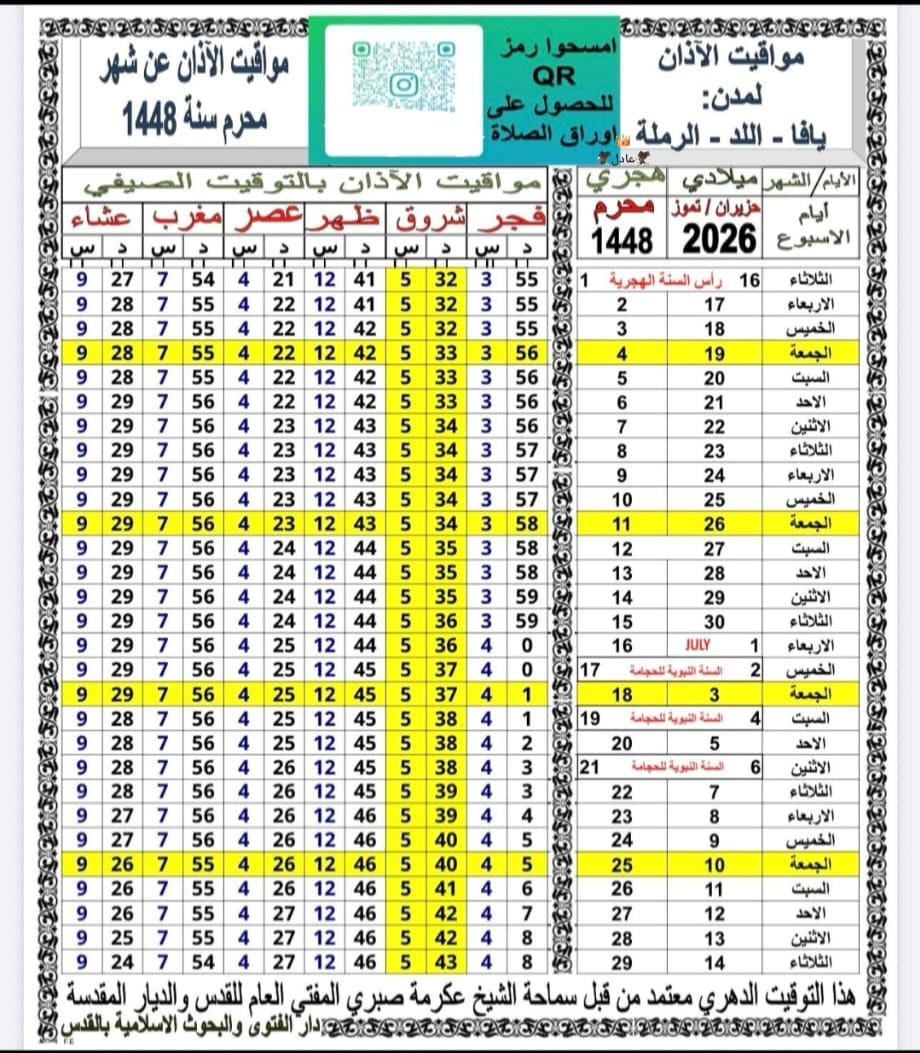 مواقيت الآذان
لمدن:
يافا - اللد - الرملة
امسحوا رمز
QR
للحصول على
اوراق الصلاة
عادل
مواقيت الآذان عن شهر
محرم سنة 1448
الأيام/الشهر ميلادي هجري مواقيت الآذان بالتوقيت الصيفي
أيام الاسبوع حزيران / تموز 2026 محرم 1448 فجر شروق ظهر عصر مغرب عشاء
د س د س د س د س د س د س
الثلاثاء 16 رأس السنة الهجرية 1 55 3 32 5 41 12 21 4 54 7 27 9
الاربعاء 17 2 55 3 32 5 41 12 22 4 55 7 28 9
الخميس 18 3 55 3 32 5 42 12 22 4 55 7 28 9
الجمعة 19 4 56 3 33 5 42 12 22 4 55 7 28 9
السبت 20 5 56 3 33 5 42 12 22 4 55 7 28 9
الاحد 21 6 56 3 33 5 42 12 22 4 56 7 29 9
الاثنين 22 7 56 3 34 5 43 12 23 4 56 7 29 9
الثلاثاء 23 8 57 3 34 5 43 12 23 4 56 7 29 9
الاربعاء 24 9 57 3 34 5 43 12 23 4 56 7 29 9
الخميس 25 10 57 3 34 5 43 12 23 4 56 7 29 9
الجمعة 26 11 58 3 34 5 43 12 23 4 56 7 29 9
السبت 27 12 58 3 35 5 44 12 24 4 56 7 29 9
الاحد 28 13 58 3 35 5 44 12 24 4 56 7 29 9
الاثنين 29 14 59 3 35 5 44 12 24 4 56 7 29 9
الثلاثاء 30 15 59 3 36 5 44 12 24 4 56 7 29 9
الاربعاء 1 JULY 16 0 4 36 5 44 12 25 4 56 7 29 9
الخميس 2 السنة النبوية للحجامة 17 0 4 37 5 45 12 25 4 56 7 29 9
الجمعة 3 18 1 4 37 5 45 12 25 4 56 7 29 9
السبت 4 السنة النبوية للحجامة 19 1 4 38 5 45 12 25 4 56 7 28 9
الاحد 5 20 2 4 38 5 45 12 25 4 56 7 28 9
الاثنين 6 السنة النبوية للحجامة 21 3 4 38 5 45 12 26 4 56 7 28 9
الثلاثاء 7 22 3 4 39 5 45 12 26 4 56 7 28 9
الاربعاء 8 23 4 4 39 5 46 12 26 4 56 7 27 9
الخميس 9 24 5 4 40 5 46 12 26 4 56 7 27 9
الجمعة 10 25 5 4 40 5 46 12 26 4 55 7 26 9
السبت 11 26 6 4 41 5 46 12 26 4 55 7 26 9
الاحد 12 27 7 4 42 5 46 12 27 4 55 7 26 9
الاثنين 13 28 8 4 42 5 46 12 27 4 55 7 25 9
الثلاثاء 14 29 8 4 43 5 46 12 27 4 54 7 24 9
هذا التوقيت الدهري معتمد من قبل سماحة الشيخ عكرمة صبري المفتي العام للقدس والديار المقدسة
دار الفتوى والبحوث الاسلامية بالقدس